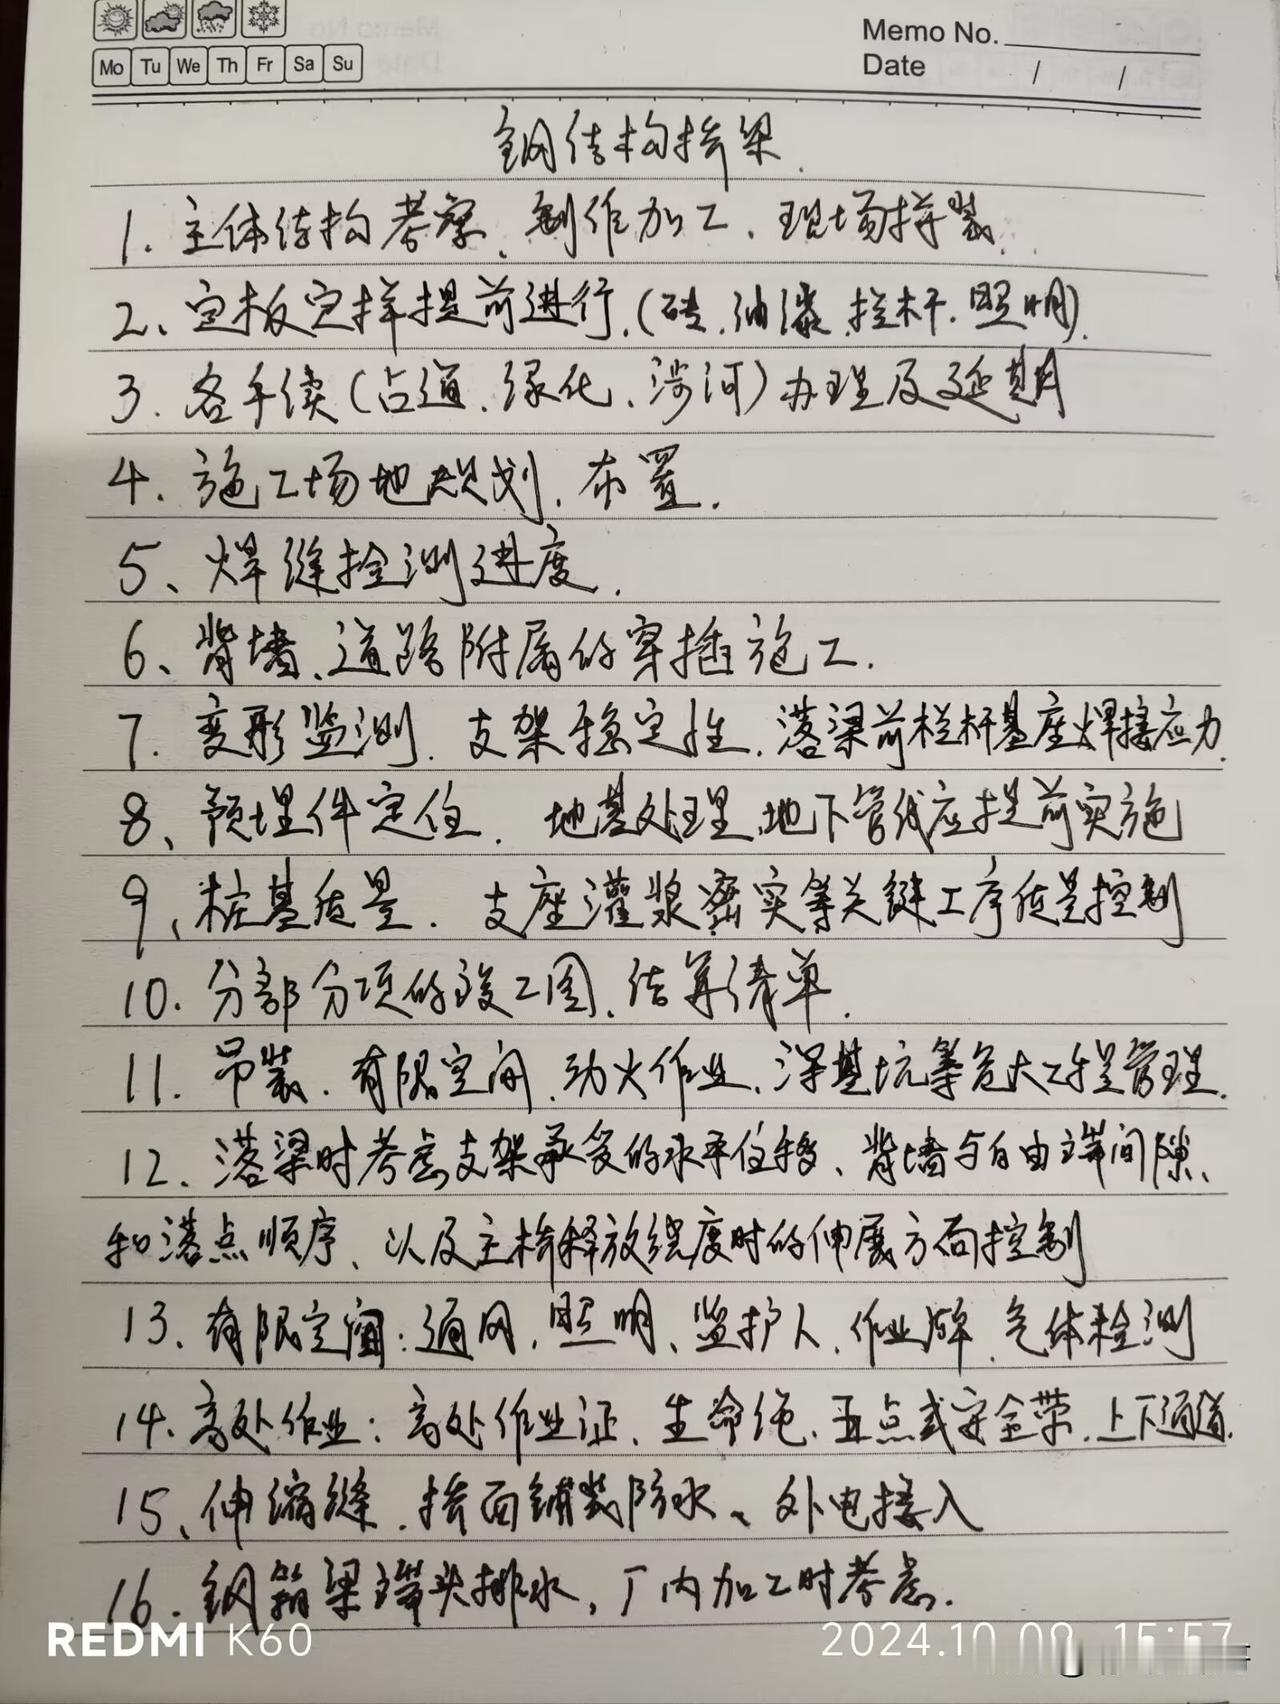 Mo Tu We Th Fr Sa Su
Memo No.
Date / /
钢结构桥梁
1. 主体结构考察、制作加工、现场拼装.
2、定板定样提前进行.(砖.油漆.拦杆.照明).
3. 各手续(占道、绿化、涉河)办理及延期
4. 施工场地规划、布置.
5、焊缝检测进度.
6、背墙、道路附属的穿插施工.
7. 变形监测. 支架稳定性. 落梁前栏杆基座焊接应力.
8、预埋件定位. 地基处理、地下管线应提前实施
9、桩基质量. 支座灌浆密实等关键工序质量控制
10. 分部分项的竣工图、结算清单.
11. 吊装. 有限空间、动火作业、深基坑等危大工程管理.
12、落梁时考虑支架承受的水平位移、背墙与自由端间隙、
和落点顺序、以及主桥释放绕度时的伸展方向控制
13、有限空间:通风.照明、监护人、作业牌、气体检测
14、高处作业:高处作业证、生命绳、五点式安全带、上下通道.
15、伸缩缝、桥面铺装防水、外电接入
16. 钢箱梁端头排水,厂内加工时考虑.
REDMI K60
2024.10.09 15:57